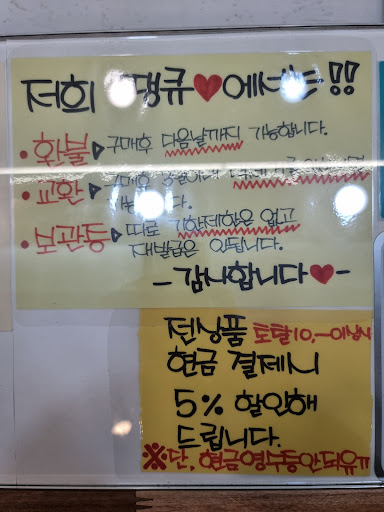 저희 땡큐♥에서는!!
• 환불 ▶ 구매후 다음날까지 가능합니다.
• 교환 ▶ 구매후
가능합니다.
• 보관증 ▶ 따로 기한제한은 없고
재발급은 안됩니다.
- 감사합니다♥ -
전상품 토탈 10,-이상시
현금 결제시
5% 할인해
드립니다.
※단, 현금영수증안돼유ㅠ